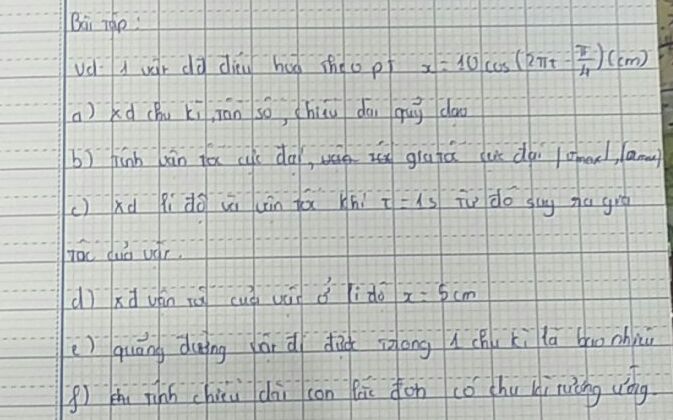 Bài tập:
Vd: 1 vật dđ điều hoà theo pt x = 10 cos (2πt - π/4) (cm)
a) xđ chu kì, tần số, chiều dài quỹ đạo
b) tính vận tốc cực đại, gia tốc cực đại |vmax|, |amax|
c) xđ li độ và vận tốc khi t = 1s từ đó suy ra gia
tốc của vật.
d) xđ vận tốc của vật ở li độ x = 5cm
e) quãng đường vật đi được trong 1 chu kì là bao nhiêu
f) tính chiều dài con lắc đơn có chu kì tương ứng.